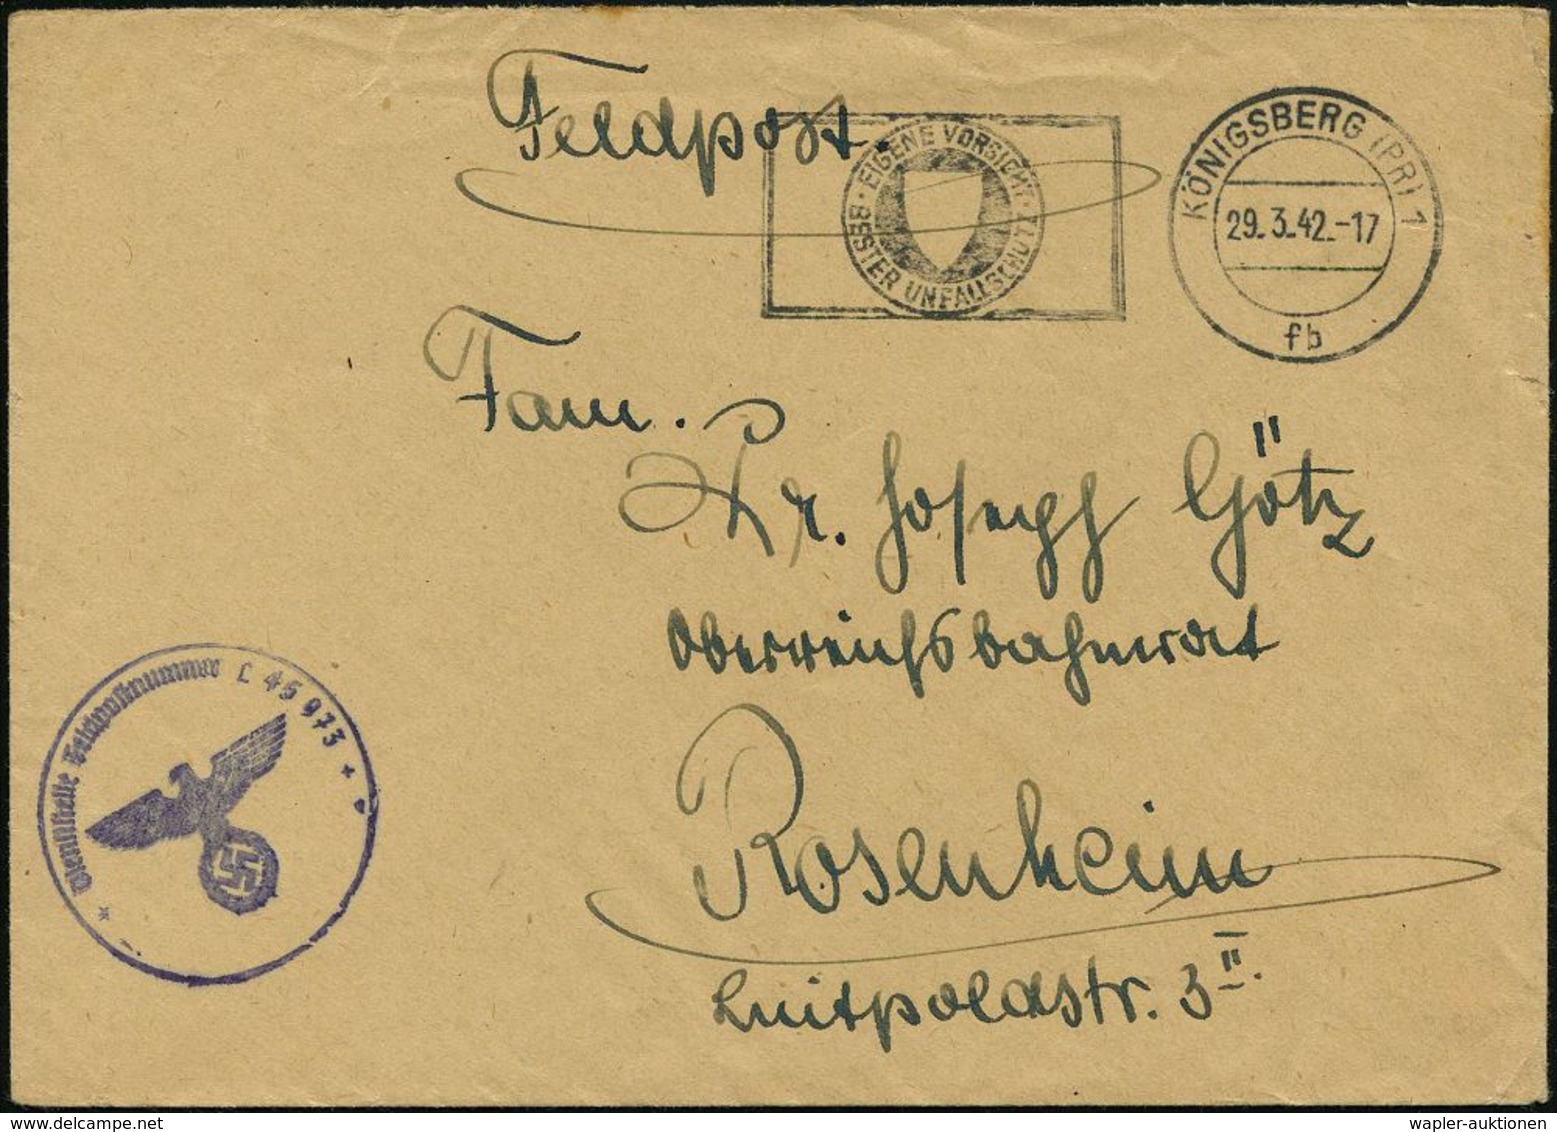 Feldpost.
EIGENE VORSICHT · BESTER UNFALLSCHUTZ ·
KÖNIGSBERG (PR) 1
29.3.42.-17
fb
Fam.
Dr. Joseph Götz
Oberreichsbahnrat
Rosenheim
Luitpoldstr. 3 II.
* Dienststelle Feldpostnummer L 46 973 *
wapler-auktionen